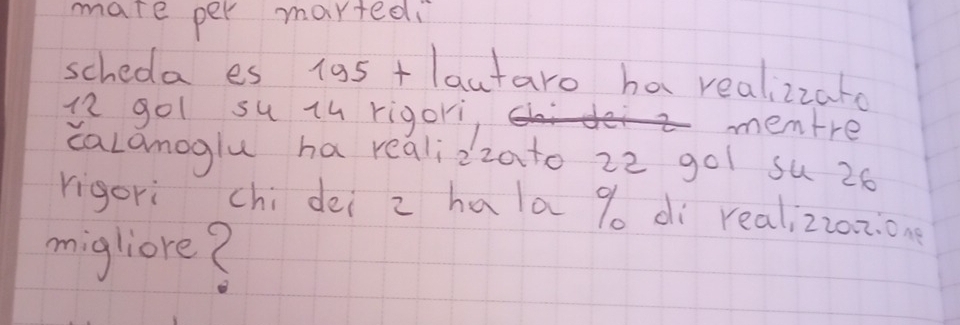 mate per martedì
scheda es 195 + lautaro ha realizzato
12 gol su 14 rigori, chi dei 2 mentre
čaLanoglu ha realizzato 22 gol su 26
rigori chi dei 2 ha la % di realizzazione
migliore?